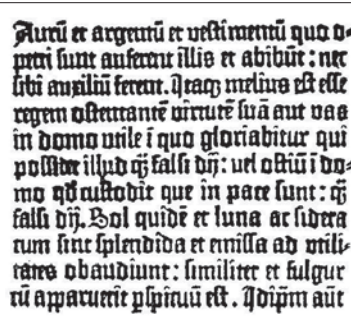 Aurū et argentū et vestimentū quo o-
peti sunt auferent illis et abibūt : nec
sibi auxiliū ferent. Itaqꝫ melius est esse
regem ostentantē virtutē suā aut vas
in domo utile ī quo gloriabitur qui
possidet illud qꝫ falsi dij : uel ostiū ī do-
mo qd̄ custodit que in pace sunt : qꝫ
falsi dij. Sol quidē et luna ac sidera
cum sint splendida et emissa ad utili-
tates obaudiunt : similiter et fulgur
cū apparuerit ꝑspicuū est. Idip̄m aūt